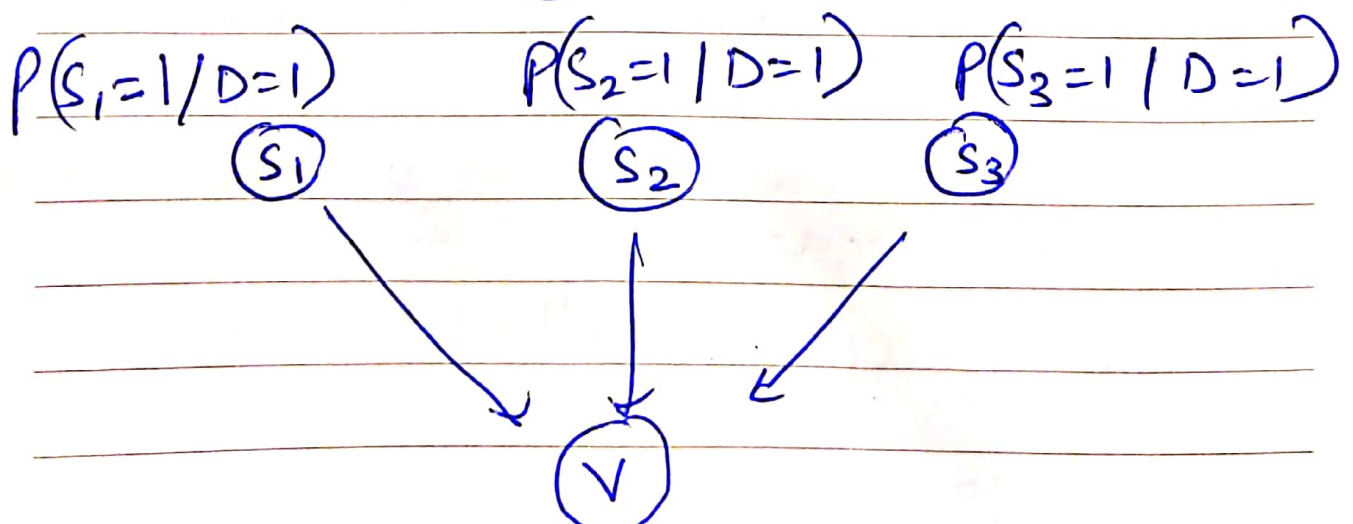 P(S₁=1/D=1) P(S₂=1/D=1) P(S₃=1/D=1)
S₁ S₂ S₃
V